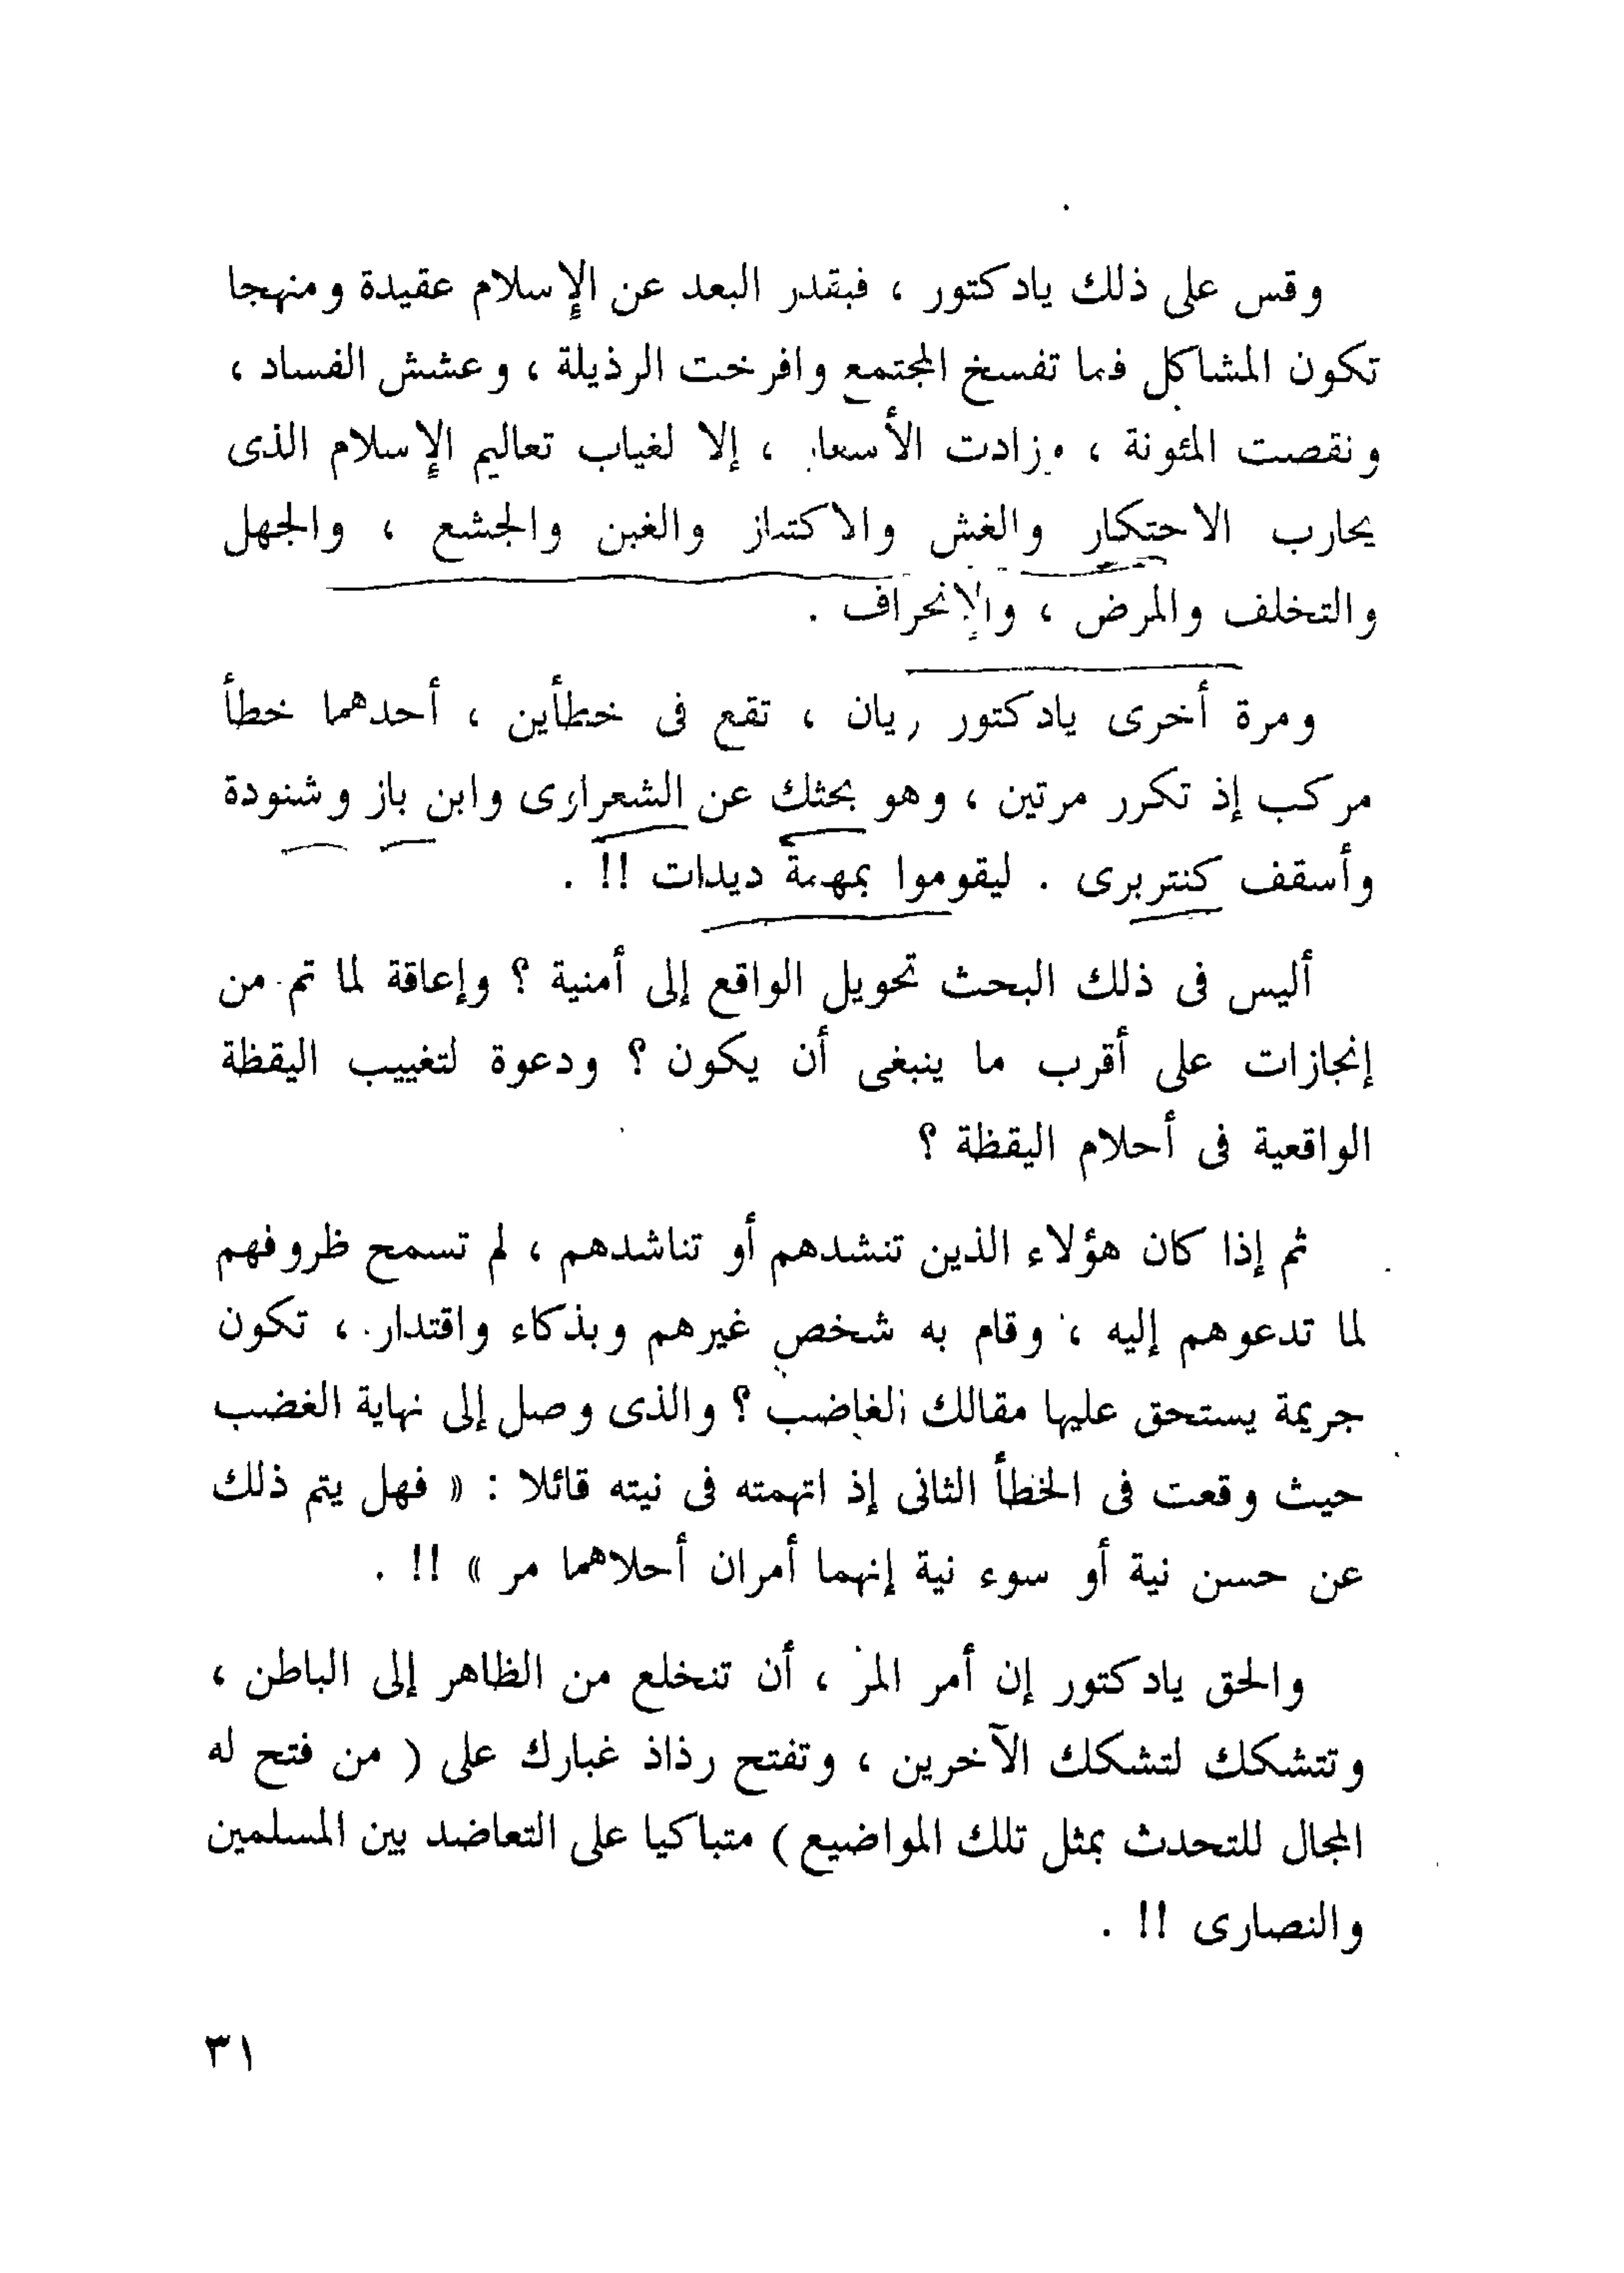 وقس على ذلك يادكتور ، فبقدر البعد عن الإسلام عقيدة ومنهجا
تكون المشاكل فما تفسخ المجتمع وافرخت الرذيلة ، وعشش الفساد ،
ونقصت المئونة ، وزادت الأسعار ، إلا لغياب تعاليم الإسلام الذى
يحارب الاحتكار والغش والاكتناز والغبن والجشع ، والجهل
والتخلف والمرض ، والإنحراف .
ومرة أخرى يادكتور ريان ، تقع فى خطأين ، أحدهما خطأ
مركب إذ تكرر مرتين ، وهو بحثك عن الشعراوى وابن باز وشنودة
وأسقف كنتربرى . ليقوموا بمهمة ديدات !! .
أليس فى ذلك البحث تحويل الواقع إلى أمنية ؟ وإعاقة لما تم من
إنجازات على أقرب ما ينبغى أن يكون ؟ ودعوة لتغييب اليقظة
الواقعية فى أحلام اليقظة ؟
ثم إذا كان هؤلاء الذين تنشدهم أو تناشدهم ، لم تسمح ظروفهم
لما تدعوهم إليه ، وقام به شخص غيرهم وبذكاء واقتدار ، تكون
جريمة يستحق عليها مقالك الغاضب ؟ والذى وصل إلى نهاية الغضب
حيث وقعت فى الخطأ الثانى إذ اتهمته فى نيته قائلا : « فهل يتم ذلك
عن حسن نية أو سوء نية إنهما أمران أحلاهما مر » !! .
والحق يادكتور إن أمر المر ، أن تنخلع من الظاهر إلى الباطن ،
وتتشكك لتشكك الآخرين ، وتفتح رذاذ غبارك على ( من فتح له
المجال للتحدث بمثل تلك المواضيع ) متباكيا على التعاضد بين المسلمين
والنصارى !! .
٣١